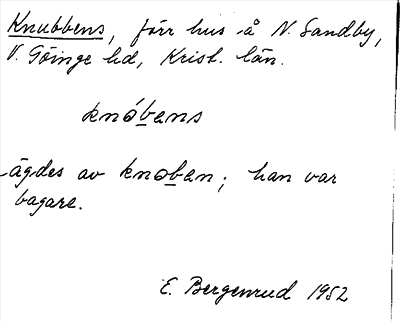 Knubbens, förr hus å N. Sandby,
V. Göinge hd, Krist. län.
knóbens
ägdes av knoben; han var
bagare.
E. Bergenrud 1952